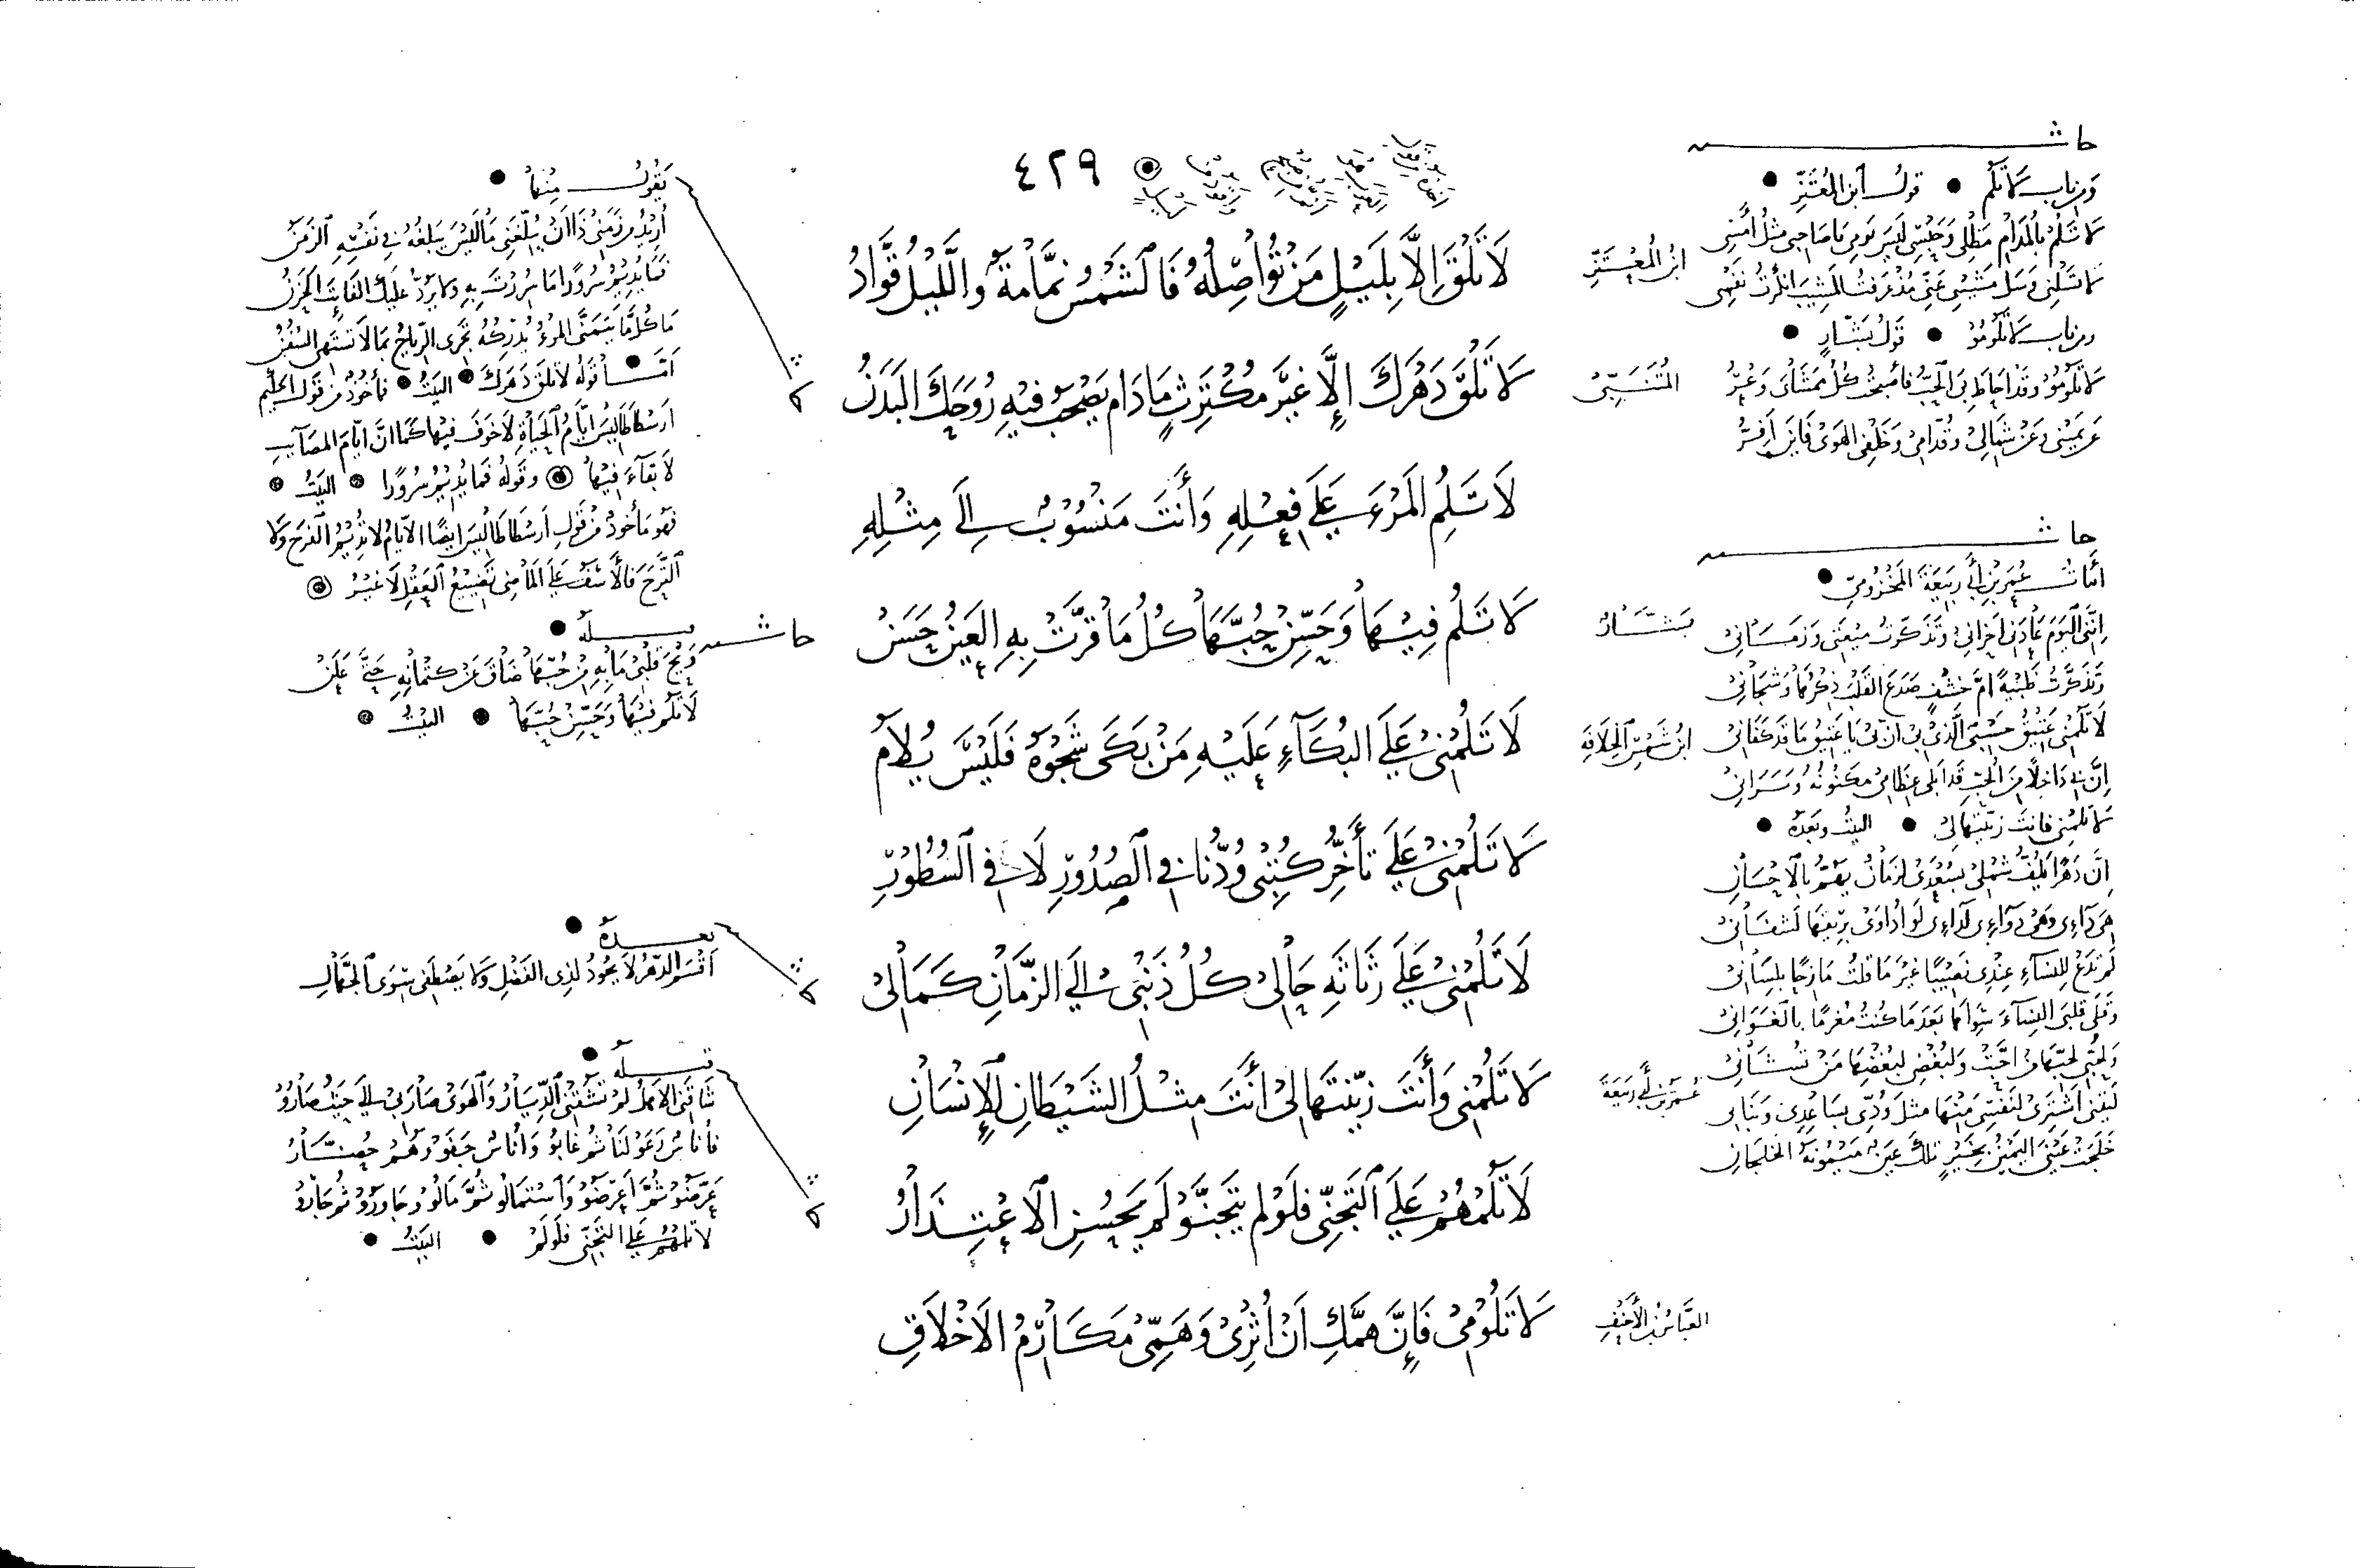 ٤٢٩
لَا تَلْقَ إِلَّا بِلَيْلٍ مَنْ تُوَاصِلُهُ فَالشَّمْسُ نَمَّامَةٌ وَاللَّيْلُ قَوَّادُ
ابنُ المُعْتَزِّ
لَا تَلْقَ دَهْرَكَ إِلَّا غَيْرَ مُكْتَرِثٍ مَا دَامَ يَصْحَبُ فِيهِ رُوحَكَ البَدَنُ
المُتَنَبِّي
لَا تَلُمِ المَرْءَ عَلَى فِعْلِهِ وَأَنْتَ مَنْسُوبٌ إِلَى مِثْلِهِ
لَا تَلُمْ فِيهَا وَحَسِّنْ حُبَّهَا كُلُّ مَا قَرَّتْ بِهِ العَيْنُ حَسَنْ
بَشَّارُ
لَا تَلُمْنِي عَلَى البُكَاءِ عَلَيْهِ مَنْ بَكَى شَجْوَهُ فَلَيْسَ يُلَامُ
ابنُ شَمْسِ الخِلَافَةِ
لَا تَلُمْنِي عَلَى تَأَخُّرِ كُتْبِي وُدُّنَا فِي الصُّدُورِ لَا فِي السُّطُورِ
لَا تَلُمْنِي عَلَى رَثَاثَةِ حَالِي كُلُّ ذَنْبِي إِلَى الزَّمَانِ كَمَالِي
لَا تَلُمْنِي وَأَنْتَ زَيَّنْتَهَا لِي أَنْتَ مِثْلُ الشَّيْطَانِ لِلْإِنْسَانِ
عُمَرُ بنُ أَبِي رَبِيعَةَ
لَا تَلُمْهُمْ عَلَى التَّجَنِّي فَلَوْ لَمْ يَتَجَنَّوْا لَمْ يَحْسُنِ الاعْتِذَارُ
لَا تَلُومِي فَإِنَّ هَمَّكِ أَنْ أُثْرِي وَهَمِّي مَكَارِمُ الأَخْلَاقِ
العَبَّاسُ بنُ الأَحْنَفِ
حاشـ
وَمِن باب لَا تَلُمْ • قولُ ابنِ المُعْتَزِّ •
لَا تَلُمْ بِالمُدَامِ مَطْلِي وَحَبْسِي لَيْسَ يَوْمِي يَا صَاحِبِي مِثْلَ أَمْسِي
لَا تَسَلْنِي وَسَلْ مَشِيبِي عَنِّي مُذْ عَرَفْتُ المَشِيبَ أَنْكَرْتُ نَفْسِي
ومن باب لَا تَلُومُوا • قَوْلُ بَشَّارٍ •
لَا تَلُومُوا وَقَدْ أَحَاطَ بِيَ الحُبُّ فَأَصْبَحْتُ
عَنْ يَمِينِي وَعَنْ شِمَالِي وَقُدَّامِي وَخَلْفِي الهَوَى فَأَيْنَ أَفِرُّ
حاشـ
أَبْيَاتُ عُمَرَ بنِ أَبِي رَبِيعَةَ المَخْزُومِيِّ •
إِنَّنِي اليَوْمَ عَادَنِي أَحْزَانِي وَتَذَكَّرْتُ مَيْعَتِي وَزَمَانِي
وَتَذَكَّرْتُ ظَبْيَةً أُمَّ خِشْفٍ صَدَعَ القَلْبَ ذِكْرُهَا وَشَجَانِي
لَا تَلُمْنِي عَتِيقُ حَسْبِي الَّذِي بِي إِنَّ بِي يَا عَتِيقُ مَا قَدْ كَفَانِي
إِنَّ بِي دَاخِلًا مِنَ الحُبِّ قَدْ أَبْلَى عِظَامِي مَكْنُونُهُ وَبَرَانِي
لَا تَلُمْنِي فَأَنْتَ زَيَّنْتَهَا لِي • البيتُ وبَعْدَهُ •
إِنَّ دَهْرًا يَلُفُّ شَمْلِي بِسُعْدَى لَزَمَانٌ يَهُمُّ بِالإِحْسَانِ
هِيَ دَائِي وَهْيَ دَوَائِي لِدَائِي لَوْ أُدَاوَى بِرِيقِهَا لَشَفَانِي
لَمْ تَدَعْ لِلنِّسَاءِ عِنْدِي نَصِيبًا غَيْرَ مَا قُلْتُ مَازِحًا بِلِسَانِي
وَقَلَى قَلْبِيَ النِّسَاءَ سِوَاهَا بَعْدَ مَا كُنْتُ مُغْرَمًا بِالغَوَانِي
خَلَجَتْ عَيْنِيَ اليَمِينُ بِخَيْرٍ تِلْكَ عَيْنٌ مَيْمُونَةُ الخَلَجَانِ
يَقُولُ مِنْهَا •
أُرِيدُ مِنْ زَمَنِي ذَا أَنْ يُبَلِّغَنِي مَا لَيْسَ يَبْلُغُهُ فِي نَفْسِهِ الزَّمَنُ
فَمَا يُدِيمُ سُرُورًا مَا سُرِرْتَ بِهِ وَلَا يَرُدُّ عَلَيْكَ الفَائِتَ الحَزَنُ
مَا كُلُّ مَا يَتَمَنَّى المَرْءُ يُدْرِكُهُ تَجْرِي الرِّيَاحُ بِمَا لَا تَشْتَهِي السُّفُنُ
أَمَّا قَوْلُهُ لَا تَلْقَ دَهْرَكَ • البَيْتُ • فَمَأْخُوذٌ مِنْ قَوْلِ الحَكِيمِ
أَرِسْطَاطَالِيسَ أَيَّامُ الحَيَاةِ لَا خَوْفَ فِيهَا كَمَا أَنَّ أَيَّامَ المَصَائِبِ
لَا بَقَاءَ فِيهَا وَقَوْلُهُ فَمَا يُدِيمُ سُرُورًا • البَيْتُ •
فَهُوَ مَأْخُوذٌ مِنْ قَوْلِ أَرِسْطَاطَالِيسَ أَيْضًا الأَيَّامُ لَا تُدِيمُ الفَرَحَ وَلَا
التَّرَحَ فَالأَسَفُ عَلَى المَاضِي تَضْيِيعُ العَقْلِ لَا غَيْرُ
حاشـ قبلَهُ •
وَيْحَ قَلْبِي مَا بِهِ مِنْ حُبِّهَا ضَاقَ عَنْ كِتْمَانِهِ حَتَّى عَلَنْ
لَا تَلُمْ فِيهَا وَحَسِّنْ حُبَّهَا • البَيْتُ •
بعدَهُ •
أَقْسَمَ الدَّهْرُ لَا يَجُودُ لِذِي الفَضْلِ وَلَا يَصْطَفِي سِوَى الجُهَّالِ
قبلَهُ •
شَاقَنِي الأَهْلُ لَمْ تَشُقْنِي الدِّيَارُ وَالهَوَى صَائِرٌ بِي إِلَى حَيْثُ صَارُوا
فَأُنَاسٌ رَعَوْا لَنَا ثُمَّ غَابُوا وَأُنَاسٌ جَفَوْا وَهُمْ حُضَّارُ
عَرَّضُوا ثُمَّ أَعْرَضُوا وَاسْتَمَالُوا ثُمَّ مَالُوا وَجَاوَرُوا ثُمَّ جَارُوا
لَا تَلُمْهُمْ عَلَى التَّجَنِّي فَلَوْ لَمْ • البَيْتُ •